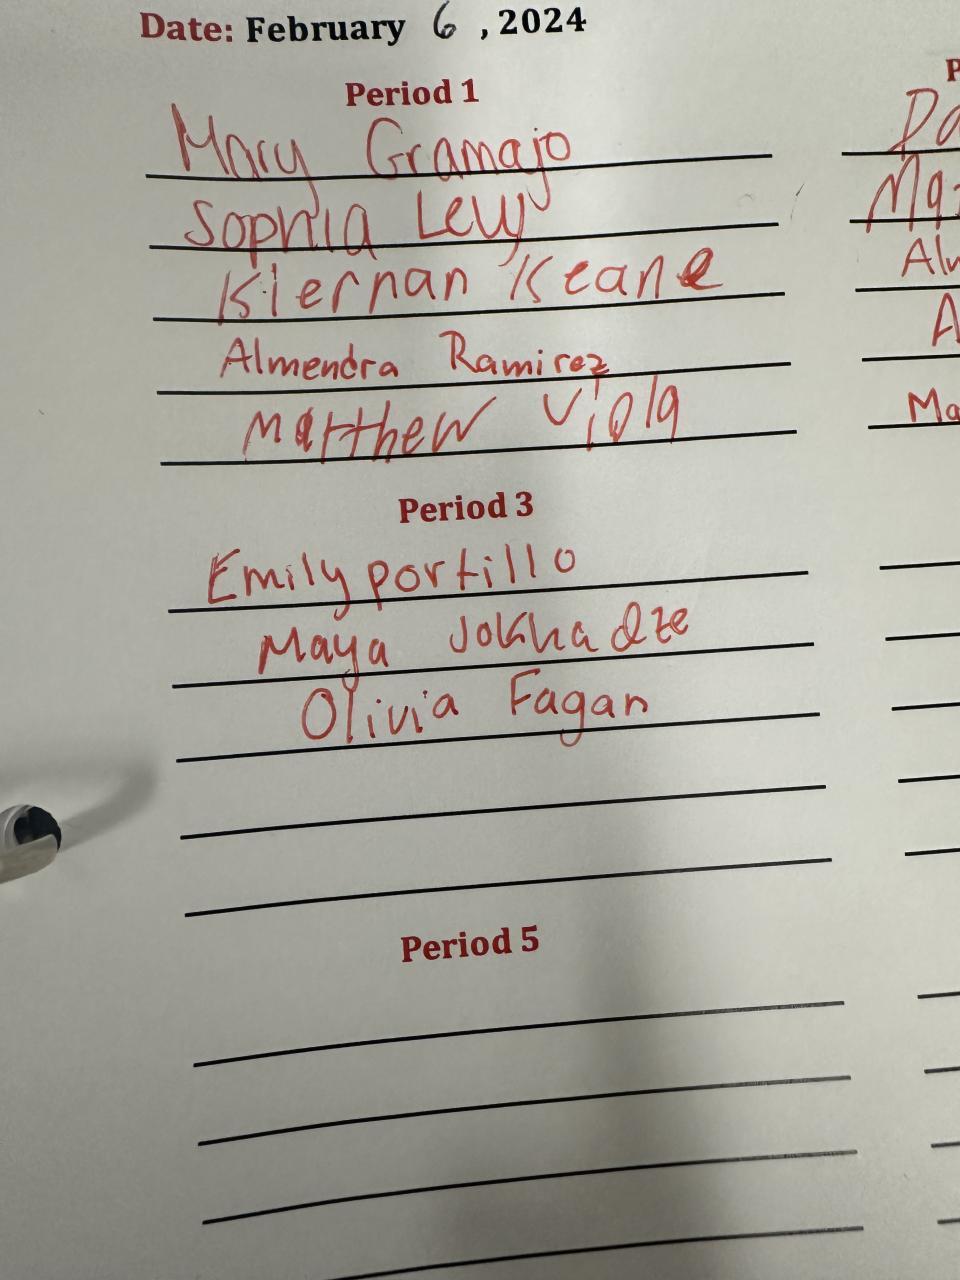 Date: February 6, 2024
Period 1
Mary Gramajo
Sophia Levy
Kiernan Keane
Almendra Ramirez
Matthew Viola
Period 3
Emily portillo
Maya Jokhadze
Olivia Fagan
Period 5